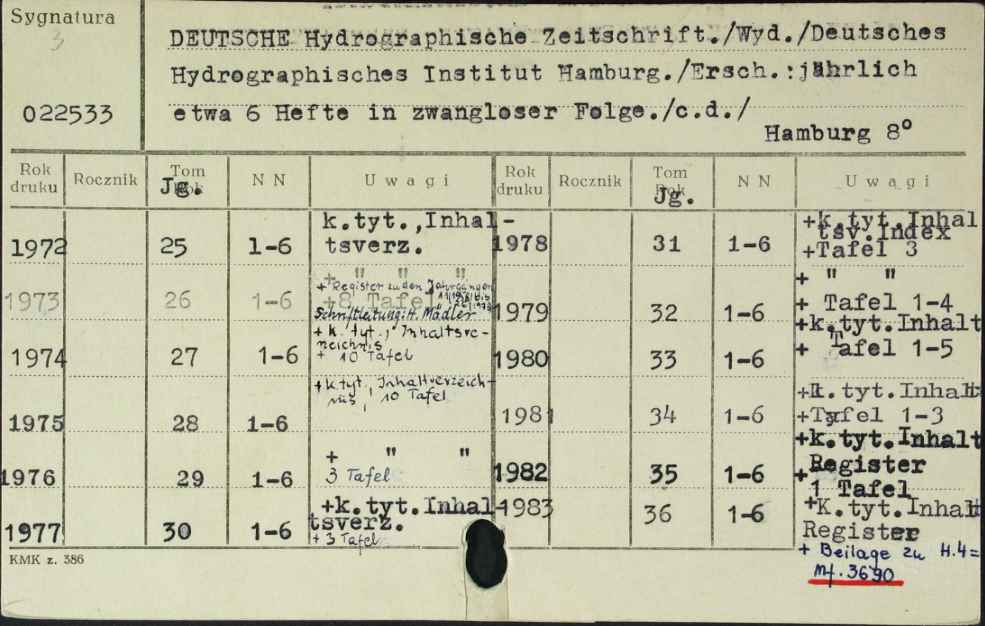 Sygnatura
3
022533
DEUTSCHE Hydrographische Zeitschrift./Wyd./Deutsches
Hydrographisches Institut Hamburg./Ersch.:jährlich
etwa 6 Hefte in zwangloser Folge./c.d./
Hamburg 8°
Rok druku Rocznik Tom Rok Jg. NN Uwagi Rok druku Rocznik Tom Rok Jg. NN Uwagi
1972 25 1-6 k.tyt.,Inhal-
tsverz.
1973 26 1-6 + " " "
+ Register zu den Jahrgängen
+8 Tafel
Schriftleitung: H. Mädler
1974 27 1-6 + k. tyt., Inhaltsve-
rzeichnis
+ 10 Tafel
1975 28 1-6 + k. tyt., Inhaltverzeich-
nis, 10 Tafel
1976 29 1-6 + " "
3 Tafel
1977 30 1-6 +k.tyt.Inhal-
tsverz.
+ 3 Tafel
1978 31 1-6 +k.tyt.Inhal
tsv.Index
+Tafel 3
1979 32 1-6 + " "
+ Tafel 1-4
1980 33 1-6 +k.tyt.Inhalt
+ Tafel 1-5
1981 34 1-6 +k.tyt.Inhalt
+Tafel 1-3
1982 35 1-6 +k.tyt.Inhalt
+Register
1 Tafel
1983 36 1-6 +K.tyt.Inhalt
Register
+ Beilage zu H.4=
Mf. 3690
KMK z. 386